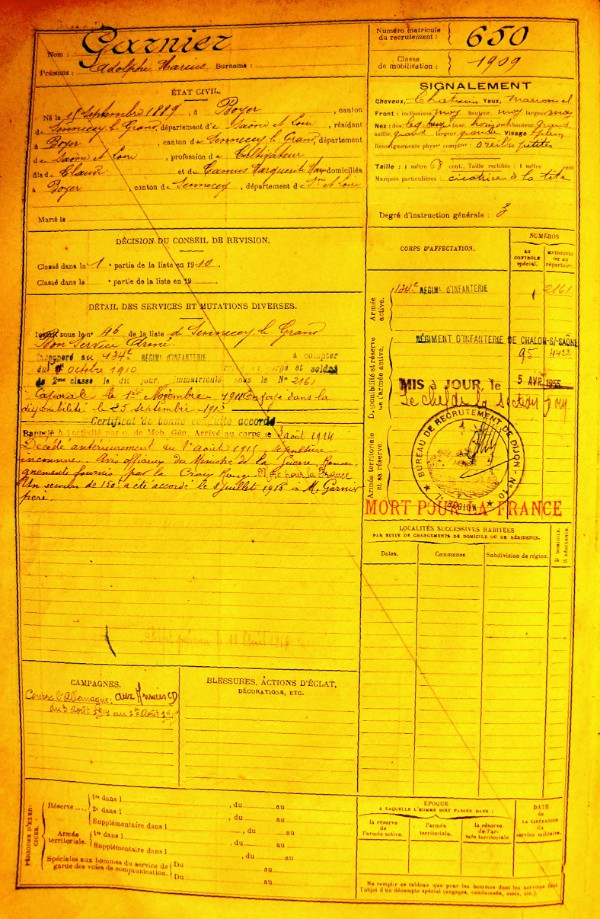 Nom : Garnier
Prénoms : Adolphe Marius Surnoms :
Numéro matricule du recrutement : 650
Classe de mobilisation : 1909
ÉTAT CIVIL.
Né le 18 Septembre 1889, à Boyer, canton
de Sennecey le Grand, département de Saône et Loire, résidant
à Boyer, canton de Sennecey le Grand, département
de Saône et Loire, profession de Cultivateur
fils de Claude et de Camus Marguerite, domiciliés
à Boyer, canton de Sennecey, département de Sne et Loire
Marié le
SIGNALEMENT
Cheveux Châtains Yeux marron
Front : inclinaison moy hauteur moy largeur
Nez : dos base hauteur
saillie largeur Visage plein
Renseignements physion. compl. : oreilles petites
Taille : 1 mètre cent. Taille rectifiée : 1 mètre cent.
Marques particulières : cicatrice à la tête
Degré d'instruction générale : 3
DÉCISION DU CONSEIL DE REVISION.
Classé dans la 1 partie de la liste en 1910.
Classé dans la partie de la liste en 19
CORPS D'AFFECTATION.
NUMÉROS
AU CONTRÔLE spécial.
MATRICULE OU AU répertoire.
Armée active.
134e RÉGIMENT D'INFANTERIE 2161
Disponibilité et réserve de l'armée active.
RÉGIMENT D'INFANTERIE DE CHALON-S/-SAÔNE 95 4422
MIS à JOUR, le 5 AVR
Le chef de la section
BUREAU DE RECRUTEMENT DE DIJON
Armée territoriale et sa réserve.
MORT POUR LA FRANCE
DÉTAIL DES SERVICES ET MUTATIONS DIVERSES.
Inscrit sous le no 46 de la liste de Sennecey le Grand
Bon Service Armé
Incorporé au 134e RÉGIMENT D'INFANTERIE à compter
du octobre 1910 corps et soldat
de 2me classe le dit jour, immatriculé sous le No 2161
Caporal le 1er Novembre 1911. Envoyé dans la
disponibilité le 25 septembre 1912
Certificat de bonne conduite accordé
Rappelé à l'activité par de Mob. Gén. Arrivé au corps le 3 août 1914
Décédé antérieurement au 1er août 1915 sépulture
inconnue. Avis officiel du Ministre de la Guerre
fournis par la Croix Rouge Mort pour la France
Un secours de 150 a été accordé le 8 juillet 1916 à M. Garnier
père.
LOCALITÉS SUCCESSIVES HABITÉES
PAR SUITE DE CHANGEMENTS DE DOMICILE OU DE RÉSIDENCE.
Dates. Communes. Subdivision de région. D. DOMICILE. R. RÉSIDENCE.
CAMPAGNES.
Contre l'Allemagne, aux Armées
du 3 août 1914 au août
BLESSURES, ACTIONS D'ÉCLAT,
DÉCORATIONS, ETC.
PÉRIODES D'EXERCICES.
Réserve
1re dans l , du au
2e dans l , du au
Supplémentaire dans l , du au
Armée territoriale.
1re dans l , du au
Supplémentaire dans l , du au
Spéciales aux hommes du service de garde des voies de communication.
Du au
Du au
ÉPOQUE
A LAQUELLE L'HOMME DOIT PASSER DANS :
la réserve de l'armée active.
l'armée territoriale.
la réserve de l'armée territoriale
DATE
de la LIBÉRATION du service militaire.
Ne remplir ce tableau que pour les hommes dont les services font
l'objet d'un décompte spécial (engagés, condamnés, omis, etc.)